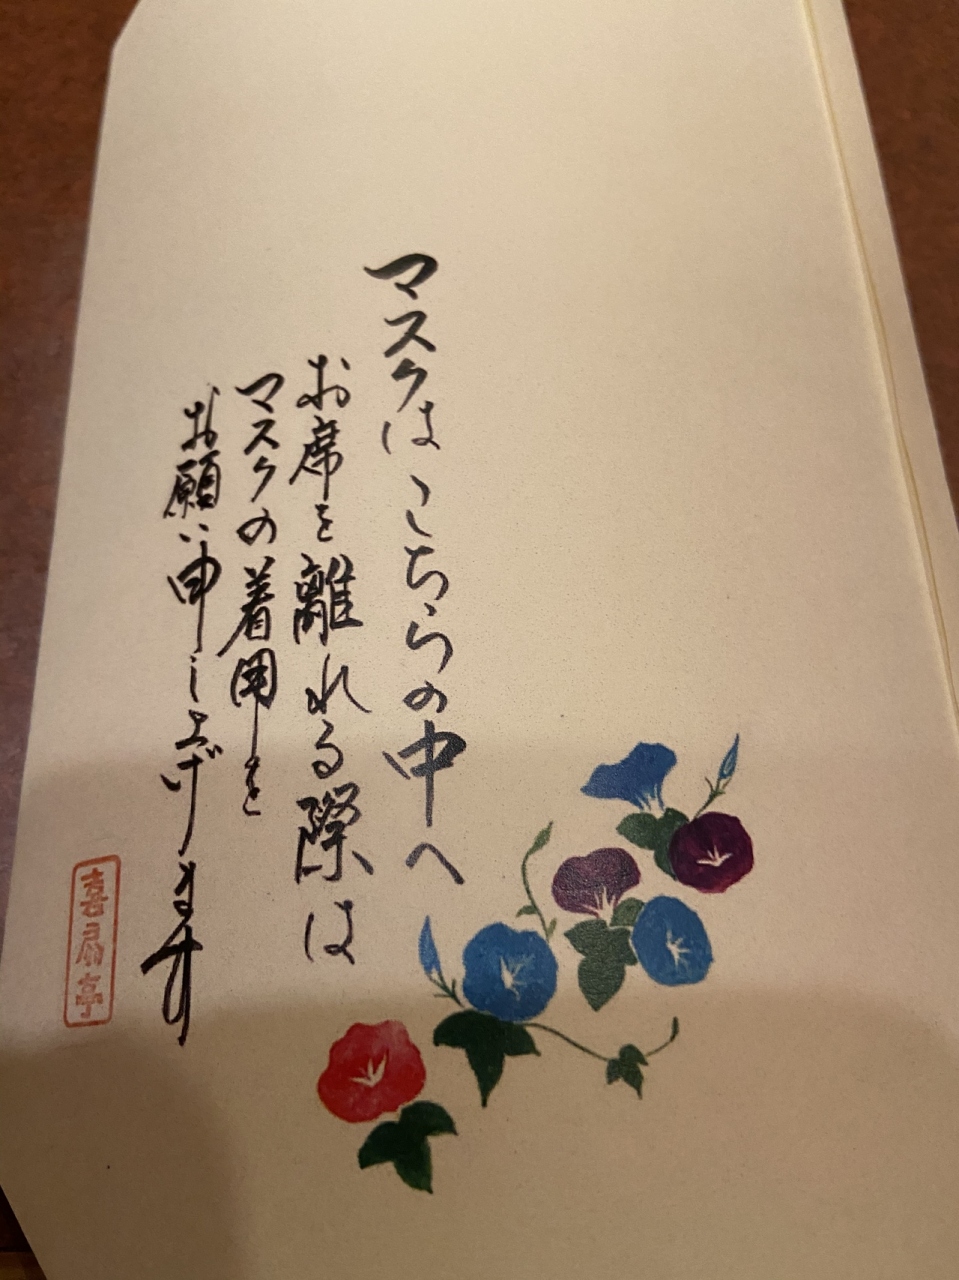 マスクはこちらの中へ
お席を離れる際は
マスクの着用を
お願い申し上げます
喜扇亭